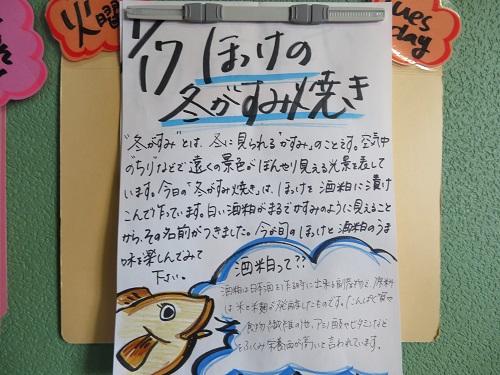 火曜
Tues
day
1/17 ほっけの
冬がすみ焼き
"冬がすみ"とは、冬に見られる"かすみ"のことです。空気中
のちりなどで遠くの景色がぼんやり見える光景を表して
います。今日の"冬がすみ焼き"は、ほっけを酒粕に漬け
こんで作っています。白い酒粕がまるでかすみのように見えること
から、その名前がつきました。今が旬のほっけと酒粕のうま
味を楽しんでみて
下さい。
酒粕って??
酒粕は日本酒を作る時に出来る副産物で、原料
は米と米麹を発酵したものです。たんぱく質や
食物繊維の他、アミノ酸やビタミンなど
をふくみ栄養面が高いと言われています。